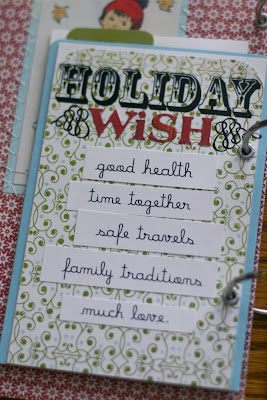 HOLIDAY
WiSH
good health
time together
safe travels
family traditions
much love.